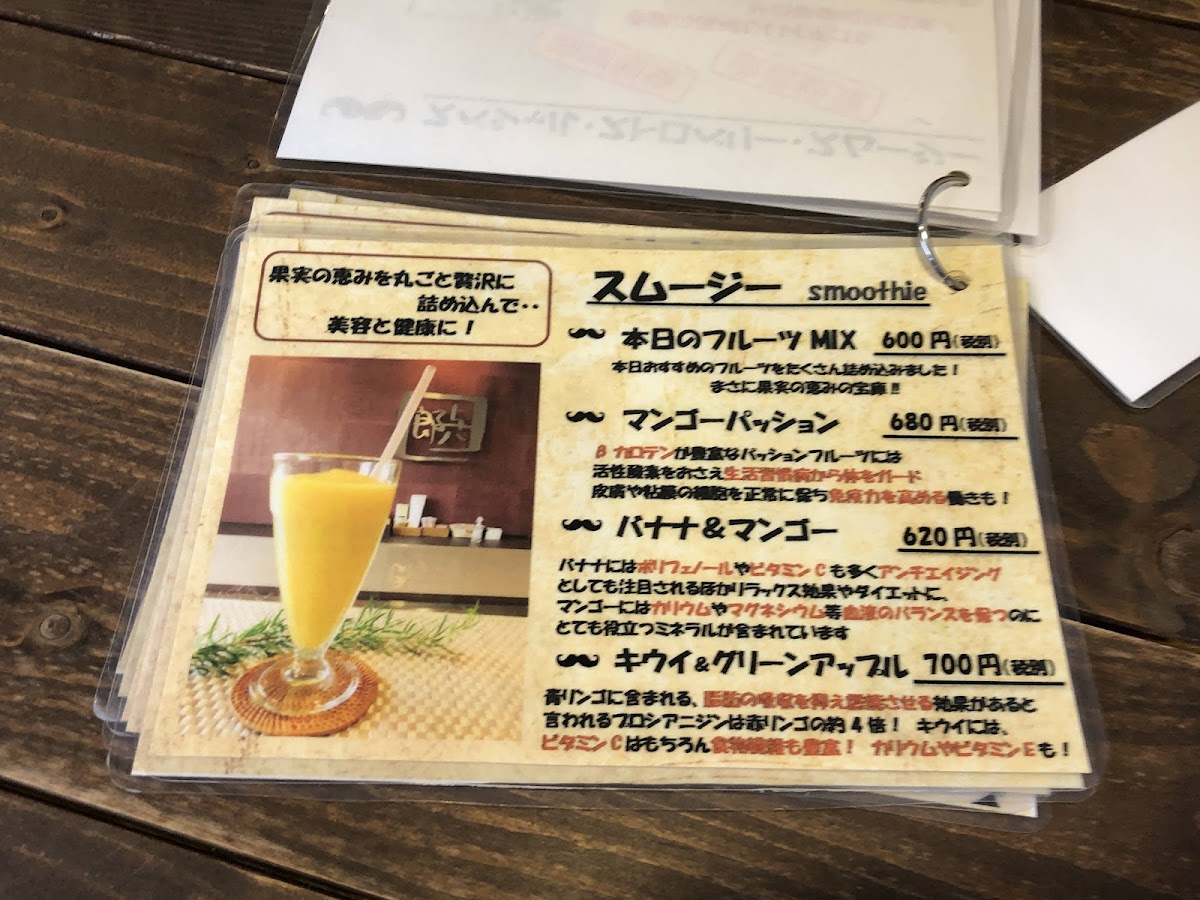 スペシャル・ストロベリー・スムージー
果実の恵みを丸ごと贅沢に
詰め込んで・・
美容と健康に！
スムージー smoothie
本日のフルーツ MIX 600円(税別)
本日おすすめのフルーツをたくさん詰め込みました！
まさに果実の恵みの宝庫!!
マンゴーパッション 680円(税別)
βカロテンが豊富なパッションフルーツには
活性酸素をおさえ生活習慣病から体をガード
皮膚や粘膜の細胞を正常に保ち免疫力を高める働きも！
バナナ&マンゴー 620円(税別)
バナナにはポリフェノールやビタミンCも多くアンチエイジング
としても注目されるほかリラックス効果やダイエットに、
マンゴーにはカリウムやマグネシウム等血液のバランスを保つのに
とても役立つミネラルが含まれています
キウイ&グリーンアップル 700円(税別)
青リンゴに含まれる、脂肪の吸収を抑え燃焼させる効果があると
言われるプロシアニジンは赤リンゴの約4倍！ キウイには、
ビタミンCはもちろん食物繊維も豊富！ カリウムやビタミンEも！